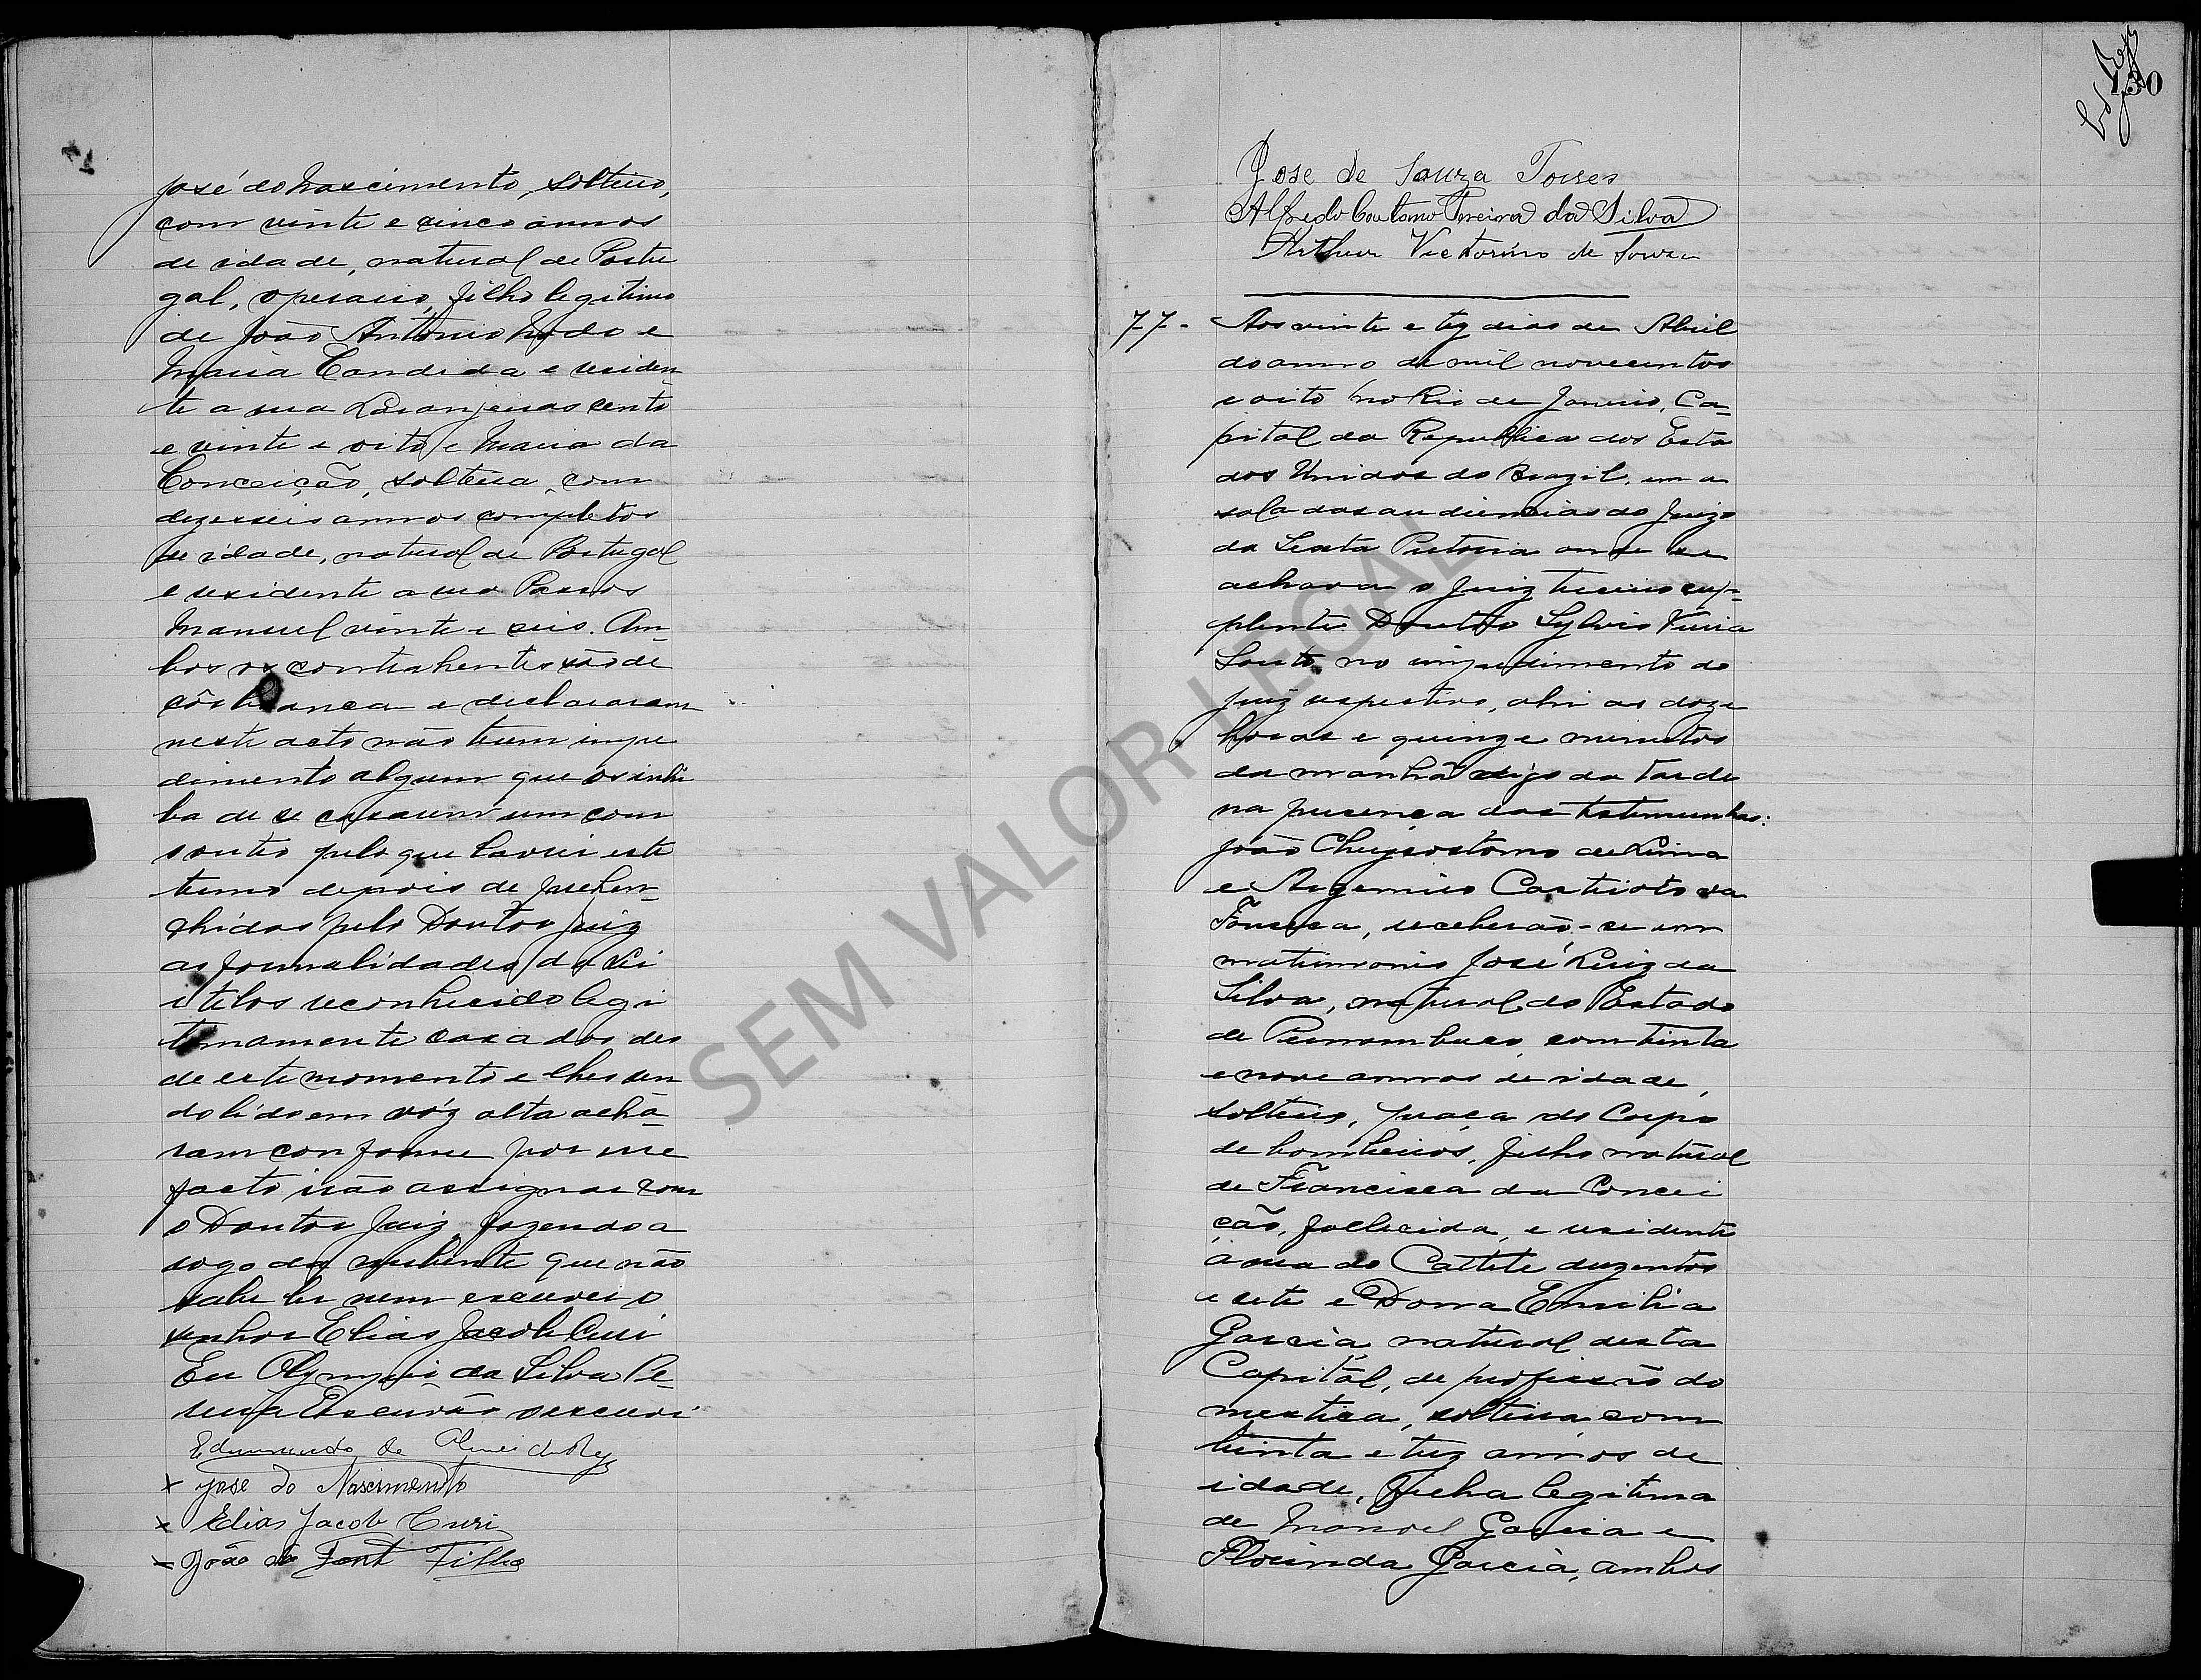 José do Nascimento, solteiro,
com vinte e cinco annos
de idade, natural de Portu
gal, operario, filho legitimo
de João Antonio Nodo e
Maria Candida e residen
te a rua Laranjeiras cento
e vinte e oito e Maria da
Conceição, solteira, com
dezesseis annos completos
de idade, natural de Portugal
e residente a rua Passos
Manuel vinte e seis. Am-
bos os contrahentes são de
côr branca e declararam
neste acto não terem impe
dimento algum que os inhi
ba de se casarem um com
o outro pelo que lavrei este
termo depois de prehen-
chidas pelo Doutor Juiz
as formalidades da Lei
e telos reconhecido legi
timamente casados des
de este momento e lhes sen
do lido em vóz alta achá-
ram conforme por cu
facto irão assignar com
o Doutor Juiz, fazendo a
rogo da nubente que não
sabe ler nem escrever o
senhor Elias Jacob Curi
Eu Olympio da Silva Pe-
reira Escrivão o escrevi
Edmundo de Almeida Rego
x Jose do Nascimento
x Elias Jacob Curi
x João da Font Filho
130
Jose de Souza Torres
Alfredo Caetano Pereira da Silva
Arthur Victorino de Souza
77- Aos vinte e tez dias de Abril
do anno de mil novecentos
e oito no Rio de Janeiro, Ca-
pital da Republica dos Esta
dos Unidos do Brazil, em a
sala das audiencias do Juizo
da Sexta Pretoria onde se
achava o Juiz terceiro sup-
plente Doutor Sylvio Vieira
Souto no impedimento do
juiz respectivo, ahi as doze
horas e quinze minutos
da manhã digo da tarde
na presença das testemunhas:
João Chrysostomo de Lima
e Argemiro Castrioto da
Fonseca, receberão-se em
matrimonio José Luiz da
Silva, natural do Estado
de Pernambuco, com trinta
e nove annos de idade,
solteiro, praça do Corpo
de bombeiros, filho natural
de Francisca da Concei
ção, fallecida, e residente
á rua do Cattete duzentos
e sete e Dona Emilia
Garcia, natural desta
Capital, de profissão do
mestica, solteira com
trinta e trez annos de
idade, filha legitima
de Manoel Garcia e
Florinda Garcia, ambos
SEM VALOR LEGAL